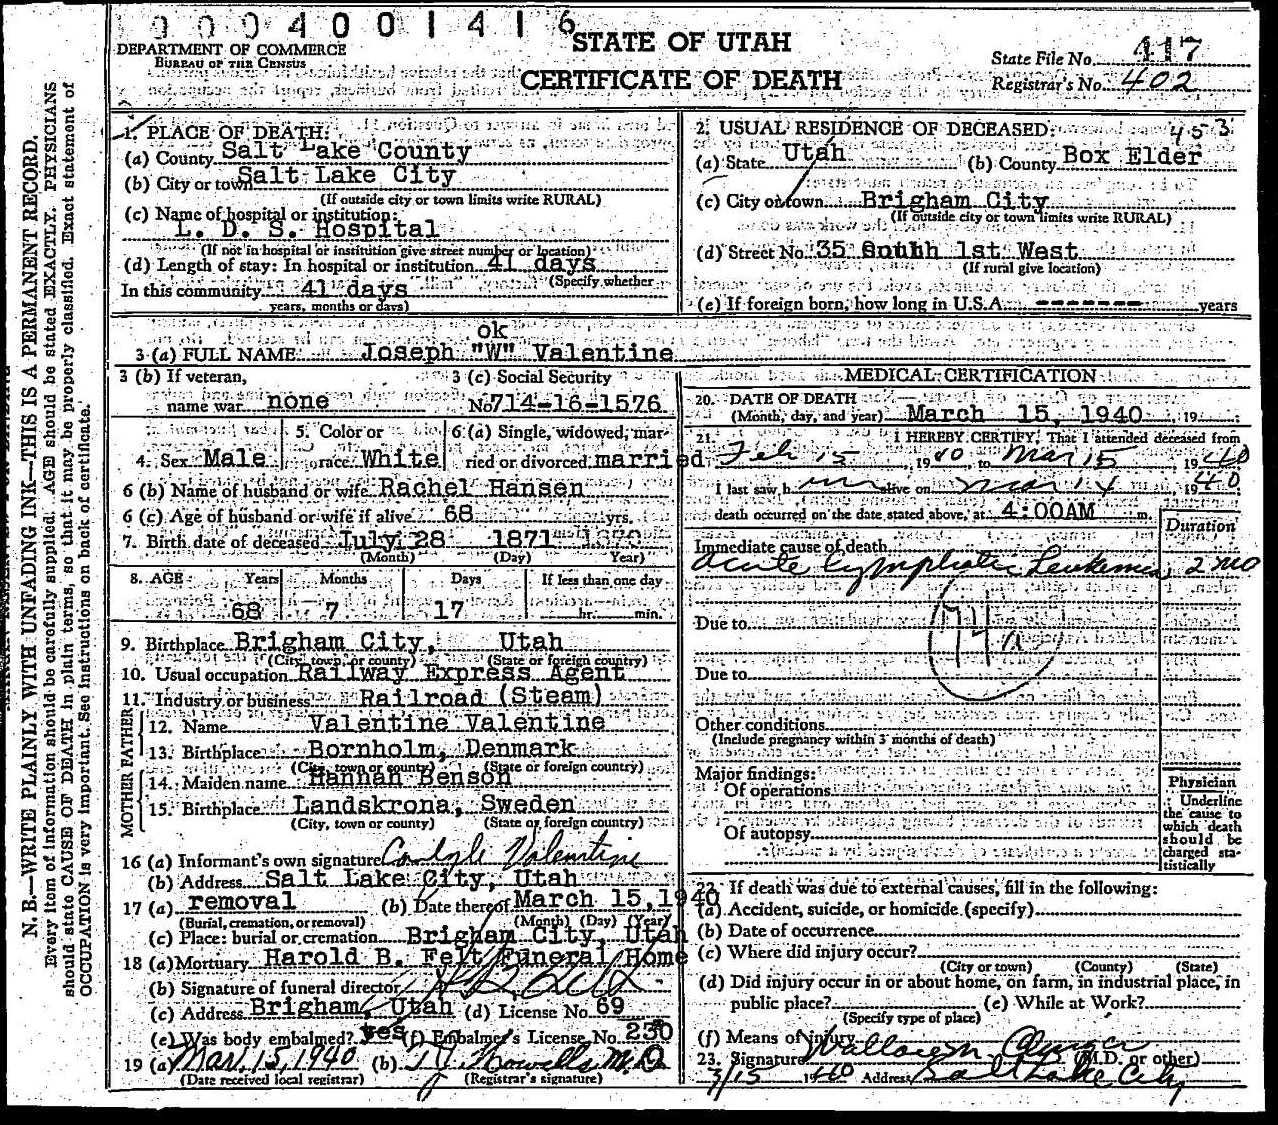 0 0 0 4 0 0 1 4 1 6
DEPARTMENT OF COMMERCE
BUREAU OF THE CENSUS
STATE OF UTAH
CERTIFICATE OF DEATH
State File No. 417
Registrar's No. 402
N. B.—WRITE PLAINLY WITH UNFADING INK—THIS IS A PERMANENT RECORD.
Every item of information should be carefully supplied. AGE should be stated EXACTLY. PHYSICIANS
should state CAUSE OF DEATH in plain terms, so that it may be properly classified. Exact statement of
OCCUPATION is very important. See instructions on back of certificate.
1. PLACE OF DEATH:
(a) County Salt Lake County
(b) City or town Salt Lake City
(If outside city or town limits write RURAL)
(c) Name of hospital or institution:
L. D. S. Hospital
(If not in hospital or institution give street number or location)
(d) Length of stay: In hospital or institution 41 days
(Specify whether
In this community 41 days
years, months or days)
2. USUAL RESIDENCE OF DECEASED: 453
(a) State Utah (b) County Box Elder
(c) City or town Brigham City
(If outside city or town limits write RURAL)
(d) Street No. 35 South 1st West
(If rural give location)
(e) If foreign born, how long in U.S.A. ------- years
ok
3 (a) FULL NAME Joseph "W" Valentine
3 (b) If veteran,
name war none
3 (c) Social Security
No. 714-16-1576
4. Sex Male
5. Color or
race White
6 (a) Single, widowed, mar-
ried or divorced married
6 (b) Name of husband or wife Rachel Hansen
6 (c) Age of husband or wife if alive 68 yrs.
7. Birth date of deceased July 28 1871
(Month) (Day) Year)
8. AGE Years Months Days If less than one day
68 7 17 hr. min.
9. Birthplace Brigham City, Utah
(City, town, or county) (State or foreign country)
10. Usual occupation Railway Express Agent
11. Industry or business Railroad (Steam)
FATHER
12. Name Valentine Valentine
13. Birthplace Bornholm, Denmark
(City, town or county) (State or foreign country)
MOTHER
14. Maiden name Hannah Benson
15. Birthplace Landskrona, Sweden
(City, town or county) (State or foreign country)
16 (a) Informant's own signature Carlyle Valentine
(b) Address Salt Lake City, Utah
17 (a) removal (b) Date thereof March 15, 1940
(Burial, cremation, or removal) (Month) (Day) (Year)
(c) Place: burial or cremation Brigham City, Utah
18 (a) Mortuary Harold B. Felt Funeral Home
(b) Signature of funeral director H B Felt
(c) Address Brigham, Utah (d) License No. 69
(e) Was body embalmed? yes (f) Embalmer's License No. 230
19 (a) Mar. 15, 1940 (b) T J Howells M.D.
(Date received local registrar) (Registrar's signature)
MEDICAL CERTIFICATION
20. DATE OF DEATH
(Month, day, and year) March 15, 1940, 19
21. I HEREBY CERTIFY, That I attended deceased from
Feb 15, 1940, to Mar 15 1940
I last saw him alive on Mar 14 1940
death occurred on the date stated above, at 4:00AM m.
Duration
Immediate cause of death
Acute Lymphatic Leukemia 2 mo
Due to
74a
Due to
Other conditions
(Include pregnancy within 3 months of death)
Major findings:
Of operations
Of autopsy
Physician
Underline
the cause to
which death
should be
charged sta-
tistically
22. If death was due to external causes, fill in the following:
(a) Accident, suicide, or homicide (specify)
(b) Date of occurrence
(c) Where did injury occur?
(City or town) (County) (State)
(d) Did injury occur in or about home, on farm, in industrial place, in
public place? (e) While at Work?
(Specify type of place)
(f) Means of injury
23. Signature (M.D. or other)
3/15 1940 Address Salt Lake City